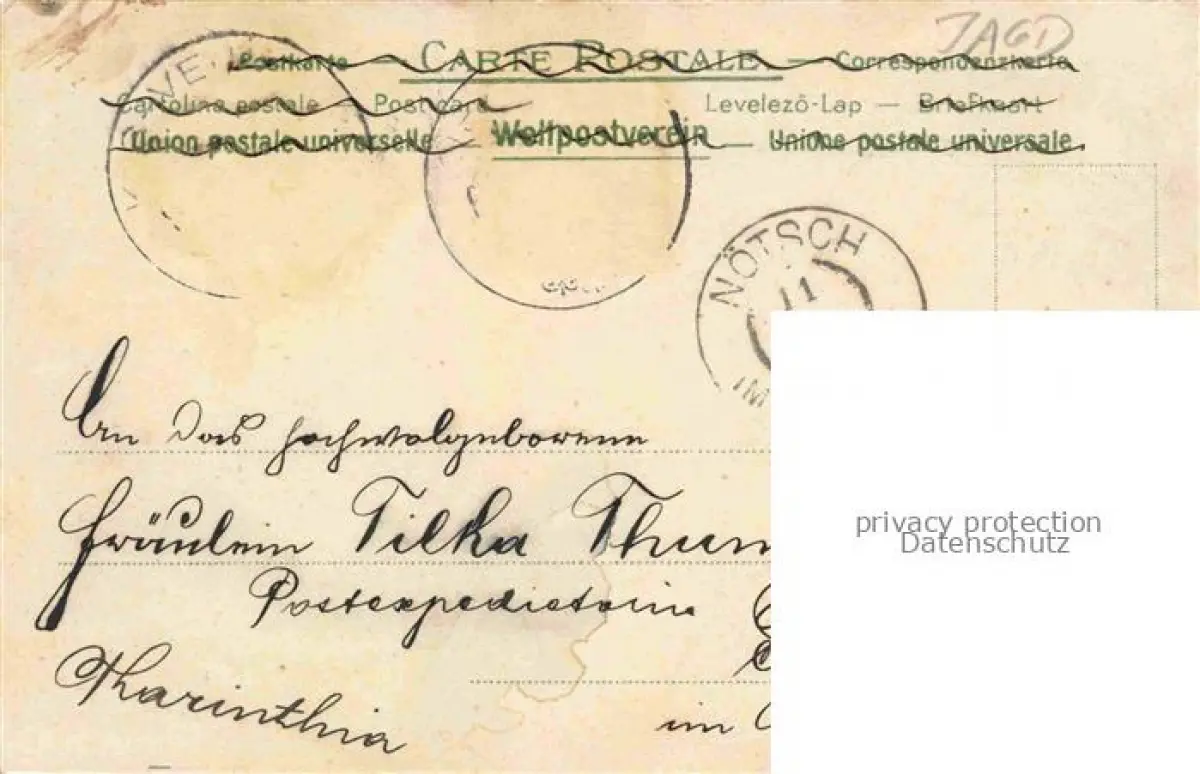 JAGD
Postkarte — CARTE POSTALE — Correspondenzkarte
Cartolina postale — Post card Levelező-Lap — Briefkaart
Union postale universelle Weltpostverein — Unione postale universale
NÖTSCH
11
IM
An das hochwolgeborene
Fräulein Tilka Thum
Postexpedietorin
Karinthia
im
privacy protection
Datenschutz